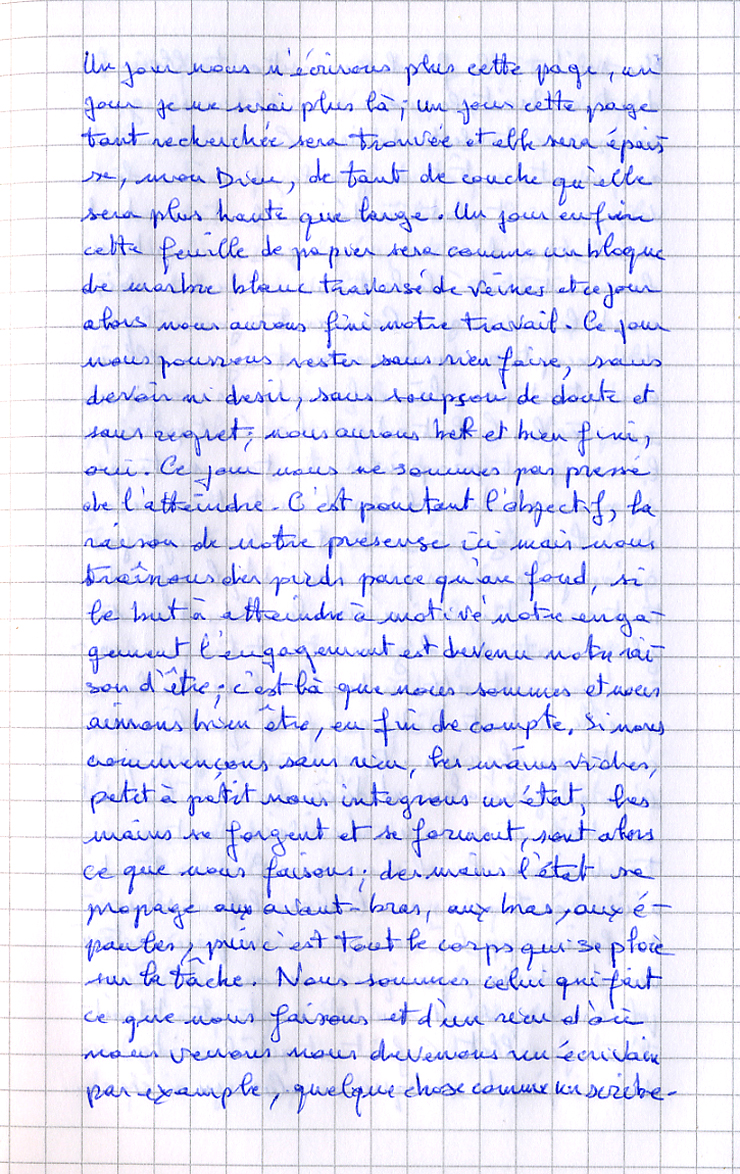 Un jour nous n'écrivons plus cette page, un
jour je ne serai plus là ; un jour cette page
tant recherchée sera trouvée et elle sera épais
se, mon Dieu, de tant de couche qu'elle
sera plus haute que large. Un jour enfin
cette feuille de papier sera comme un bloque
de marbre blanc traversé de veines et ce jour
alors nous aurons fini notre travail. Ce jour
nous pourrons rester sans rien faire, sans
devoir ni desir, sans soupçon de doute et
sans regret ; nous aurons bel et bien fini,
oui. Ce jour nous ne sommes pas pressé
de l'atteindre. C'est pourtant l'objectif, la
raison de notre presense ici mais nous
traînons des pieds parce qu'au fond, si
le but à atteindre à motivé notre enga-
gement l'engagement est devenu notre rai
son d'être ; c'est là que nous sommes et nous
aimons bien être, en fin de compte. Si nous
commençons sans rien, les mains vides,
petit à petit nous integrons un état, les
mains se forgent et se forment, sont alors
ce que nous faisons ; des mains l'état se
propage aux avant-bras, aux bras, aux é-
paules, puis c'est tout le corps qui se ploie
sur la tâche. Nous sommes celui qui fait
ce que nous faisons et d'un rien d'où
nous venons nous devenons un écrivain
par exemple, quelque chose comme un scribe.